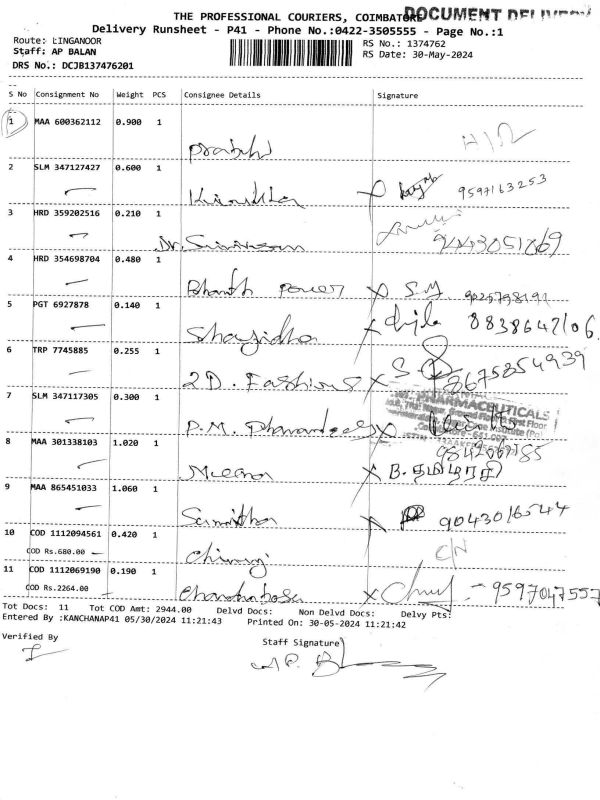 THE PROFESSIONAL COURIERS, COIMBATORE
DOCUMENT DELIVERY
Delivery Runsheet - P41 - Phone No.:0422-3505555 - Page No.:1
Route: LINGANOOR
RS No.: 1374762
Staff: AP BALAN
RS Date: 30-May-2024
DRS No.: DCJB137476201
S No Consignment No Weight PCS Consignee Details Signature
1 MAA 600362112 0.900 1
2 SLM 347127427 0.600 1
9597163253
3 HRD 359202516 0.210 1
Dr. Srinivasan
4 HRD 354698704 0.480 1
Bharath power X S.M
5 PGT 6927878 0.140 1
Shajidha X 8838642106
6 TRP 7745885 0.255 1
2D. Fashions X 8675854939
7 SLM 347117305 0.300 1
PHARMACEUTICALS
First Floor
P.M. X
8 MAA 301338103 1.020 1
Meena X B. தமிழரசி
9 MAA 865451033 1.060 1
X 9043016544
10 COD 1112094561 0.420 1
COD Rs.680.00
C/N
11 COD 1112069190 0.190 1
COD Rs.2264.00
Chandrabose X 9597047557
Tot Docs: 11 Tot COD Amt: 2944.00 Delvd Docs: Non Delvd Docs: Delvy Pts:
Entered By :KANCHANAP41 05/30/2024 11:21:43 Printed On: 30-05-2024 11:21:42
Verified By
Staff Signature